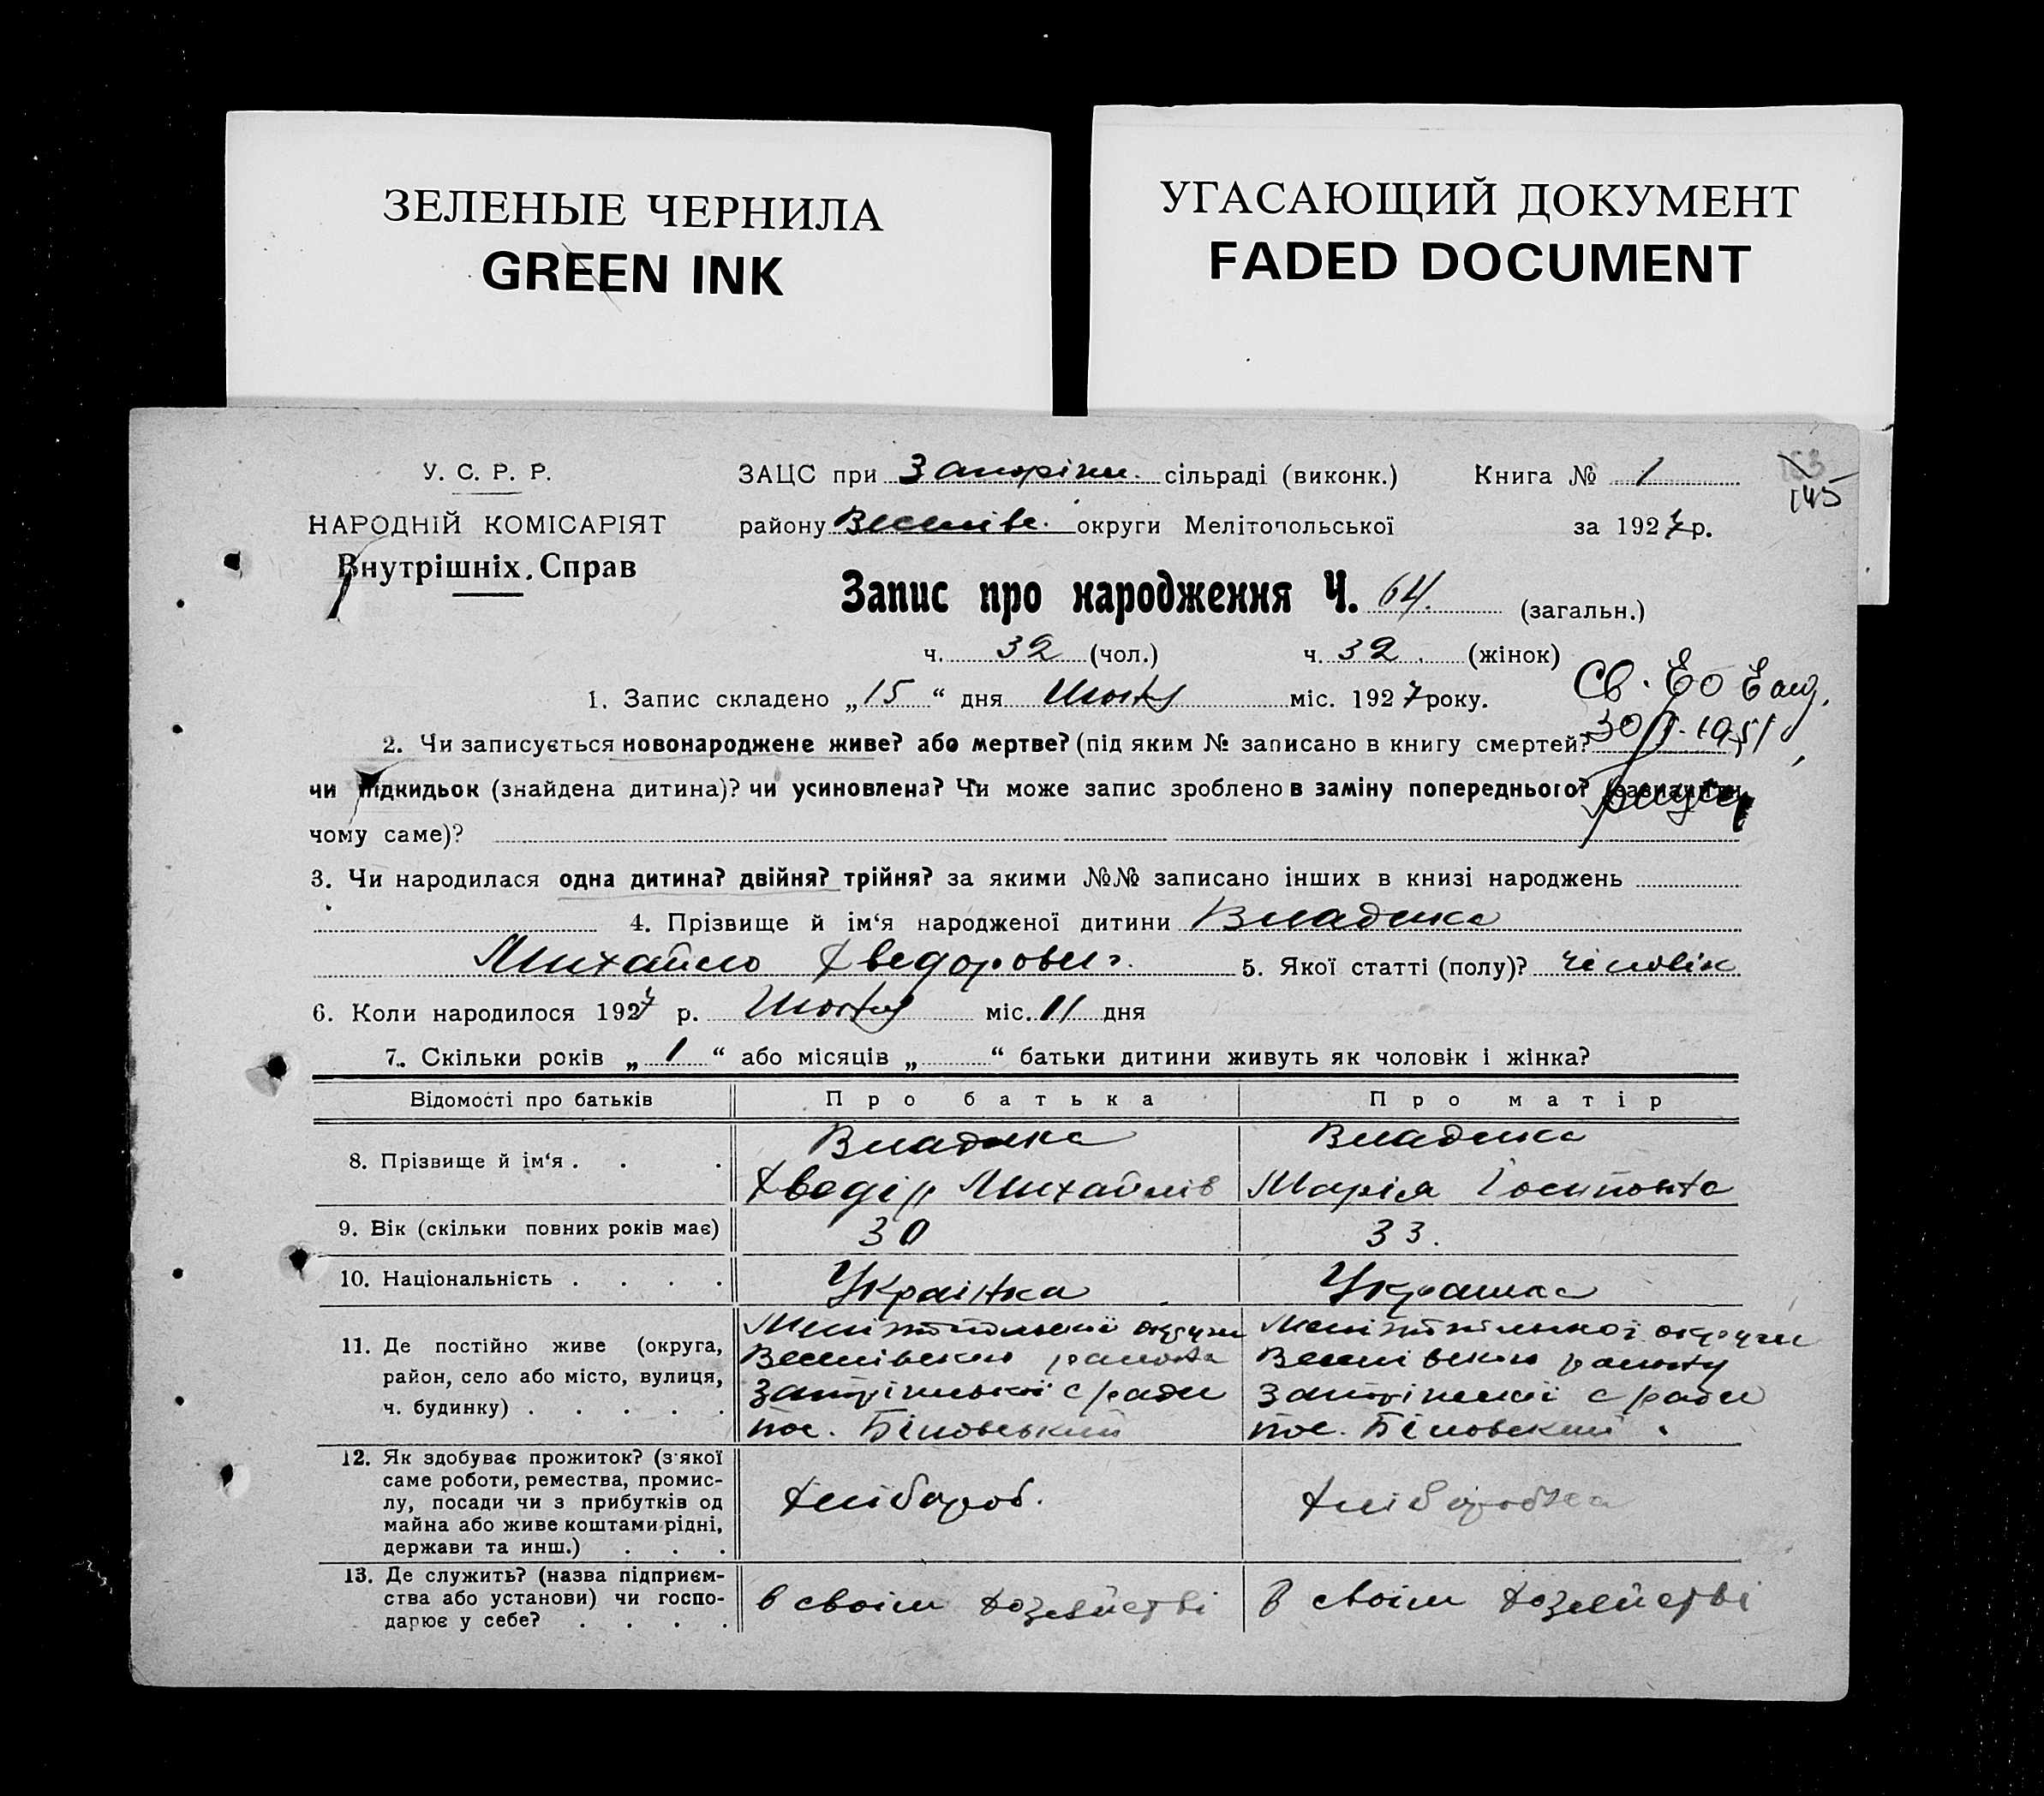 ЗЕЛЕНЫЕ ЧЕРНИЛА
GREEN INK
УГАСАЮЩИЙ ДОКУМЕНТ
FADED DOCUMENT
У. С. Р. Р.
НАРОДНІЙ КОМІСАРІЯТ
Внутрішніх Справ
ЗАЦС при Запоріж. сільраді (виконк.) Книга № 1
145
району Веселівс. округи Мелітопольської за 1927 р.
Запис про народження Ч. 64. (загальн.)
ч. 32 (чол.) ч. 32 (жінок)
1. Запис складено „15“ дня міс. 1927 року.
Св.
2. Чи записується новонароджене живе? або мертве? (під яким № записано в книгу смертей?
чи підкидьок (знайдена дитина)? чи усиновлена? Чи може запис зроблено в заміну попереднього? (зазначити
чому саме)?
3. Чи народилася одна дитина? двійня? трійня? за якими №№ записано інших в книзі народжень
4. Прізвище й ім‘я народженої дитини Владика
Михайло Хведорович. 5. Якої статті (полу)? чоловік
6. Коли народилося 1927 р. міс. 11 дня
7. Скільки років „1“ або місяців „ “ батьки дитини живуть як чоловік і жінка?
Відомості про батьків Про батька Про матір
8. Прізвище й ім‘я . . . Владика Владика
Хведір Михайлів Марія
9. Вік (скільки повних років має) 30 33.
10. Національність . . . . Українка Українка
11. Де постійно живе (округа, район, село або місто, вулиця, ч. будинку) . . . . .
Мелітопільської округи Мелітопільської округи
Веселівського району Веселівського району
Запоріжської с/ради Запоріжської с/ради
пос. Біловський пос. Біловский
12. Як здобуває прожиток? (з якої саме роботи, ремества, промис-
лу, посади чи з прибутків од
майна або живе коштами рідні,
держави та инш.) . . .
Хлібороб. Хліборобка
13. Де служить? (назва підприєм-
ства або установи) чи госпо-
дарює у себе? . . . .
в своїм хозяйстві в своїм хозяйстві